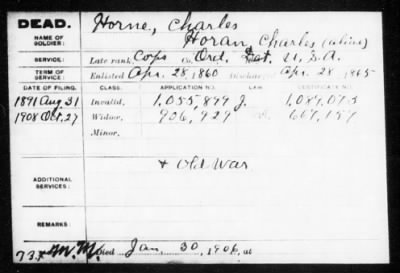 DEAD. Horne, Charles
NAME OF SOLDIER: Horan, Charles (alias)
SERVICE: Late rank, Corps Co. Ord. Det. U.S.A.
TERM OF SERVICE: Enlisted Apr. 28, 1860 Discharged Apr. 28, 1865
DATE OF FILING. CLASS. APPLICATION NO. LAW. CERTIFICATE NO.
1891 Aug 31 Invalid, 1,055,899 J.
1908 Oct, 27 Widow, 906,929 667,157
Minor,
ADDITIONAL SERVICES: + Old War
REMARKS:
M.M. Died Jan, 30, 1906, at